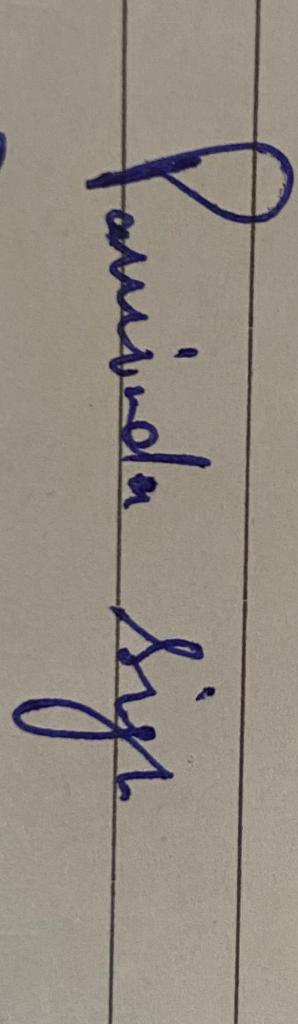 Parminder Singh